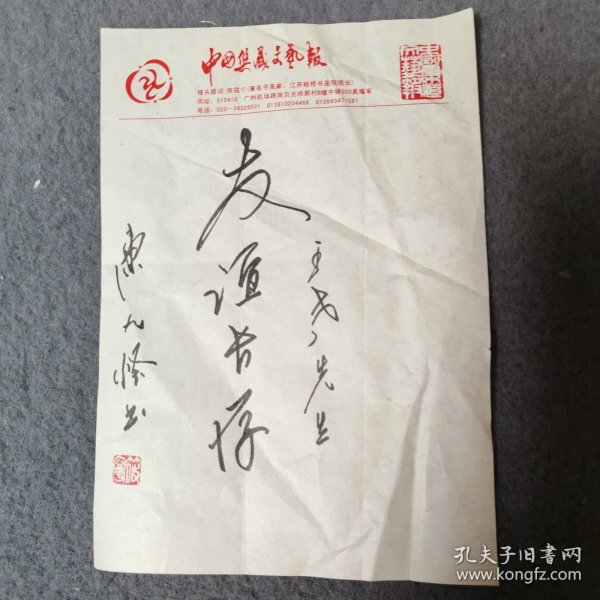 中国集藏文艺報
报头题词:陈莛宁(著名书画家、江苏板桥书画院院长)
讯址:510410 广州机场路南贝元明新村B幢宁梯503吴耀军
电话:020-36328501 013610204466 013660471561
王 先生
友谊长存
九怪书
孔夫子旧书网
www.kongfz.com